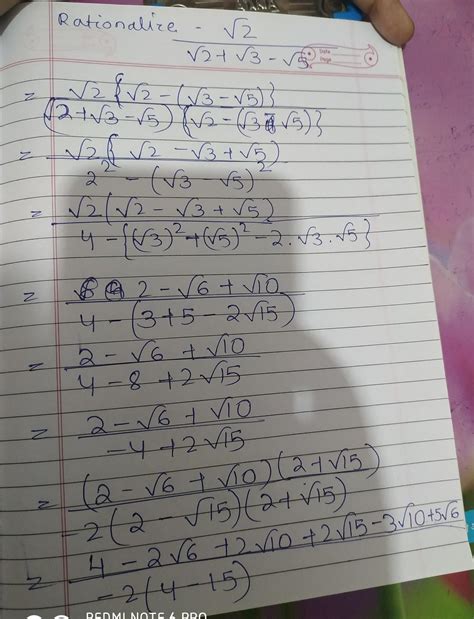 Rationalize - √2
√2 + √3 - √5
Date
Page
= √2 {√2 - (√3 - √5)}
(√2 + √3 - √5) {√2 - (√3 - √5)}
= √2 { √2 - √3 + √5)
2² - (√3 - √5)²
= √2 (√2 - √3 + √5)
4 - {(√3)² + (√5)² - 2. √3 . √5}
= 2 - √6 + √10
4 - (3 + 5 - 2√15)
= 2 - √6 + √10
4 - 8 + 2√15
= 2 - √6 + √10
- 4 + 2√15
= (2 - √6 + √10) (2 + √15)
- 2 (2 - √15) (2 + √15)
= 4 - 2√6 + 2√10 + 2√15 - 3√10 + 5√6
- 2 (4 - 15)
REDMI NOTE 6 PRO